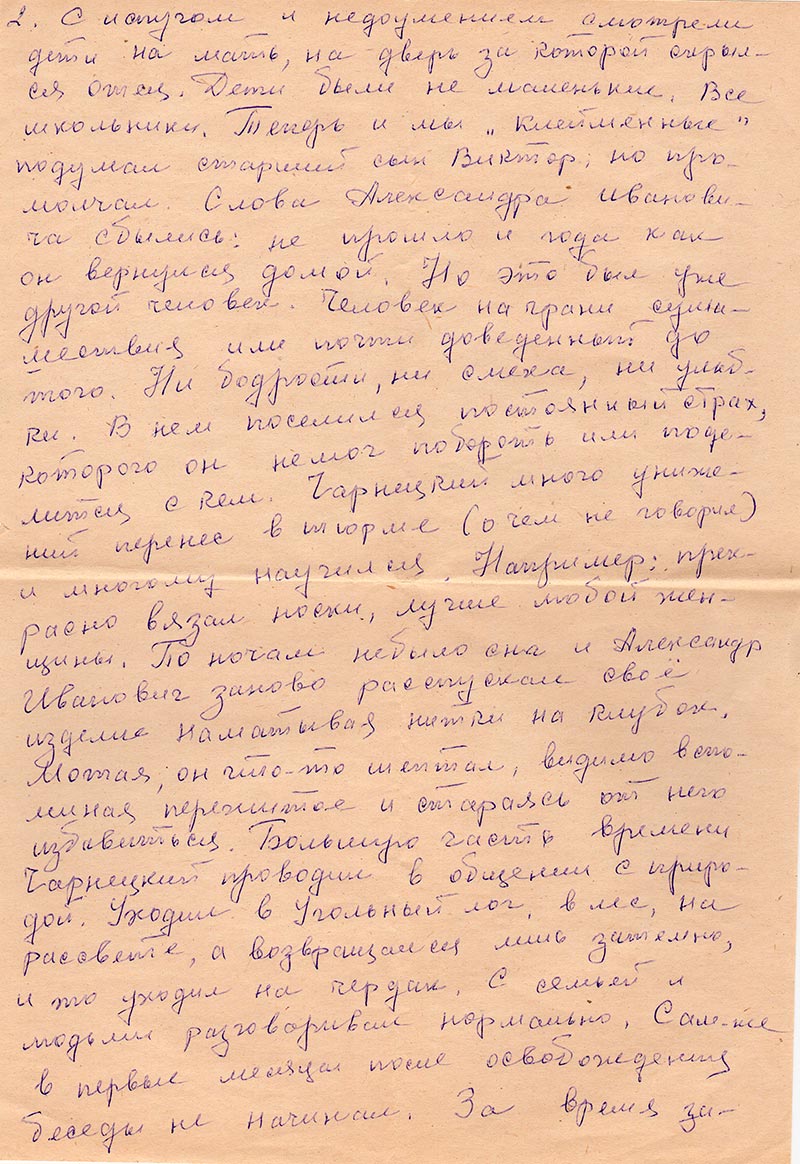 2. С испугом и недоумением смотрели
дети на мать, на дверь за которой скрыл-
ся отец. Дети были не маленькие. Все
школьники. Теперь и мы „клеймённые"
подумал старший сын Виктор, но про-
молчал. Слова Александра Иванови-
ча сбылись: не прошло и года как
он вернулся домой. Но это был уже
другой человек. Человек на грани сума-
шествия или почти доведенный до
того. Ни бодрости, ни смеха, ни улыб-
ки. В нем поселился постоянный страх,
которого он немог побороть или поде-
литься с кем. Чарнецкий много униже-
ний перенес в тюрме (о чем не говорил)
и многому научился. Например: прек-
расно вязал носки, лучше любой жен-
щины. По ночам небыло сна и Александр
Иванович заново распускал своё
изделие наматывая нитки на клубок.
Мотая, он что-то шептал, видимо вспо-
миная пережитое и стараясь от него
избавиться. Большую часть времени
Чарнецкий проводил в общении с приро-
дой. Уходил в Угольный лог, в лес, на
рассвете, а возвращался лишь затемно,
и то уходил на чердак. С семьей и
людьми разговаривал нормально. Сам-же
в первые месяцы после освобождения
беседы не начинал. За время за-